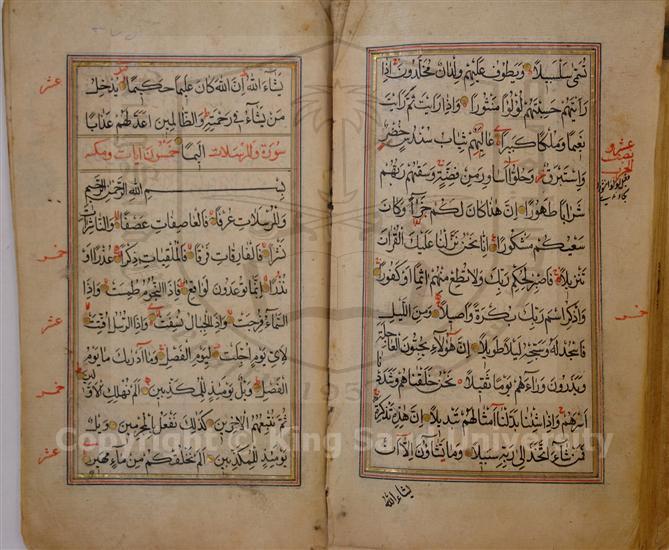 تُسَمّى سَلسَبيلًا وَيَطوفُ عَلَيهِم وِلدانٌ مُخَلَّدونَ اِذا
رَاَيتَهُم حَسِبتَهُم لُؤلُؤًا مَنثورًا وَاِذا رَاَيتَ ثَمَّ رَاَيتَ
نَعيمًا وَمُلكًا كَبيرًا عالِيَهُم ثِيابُ سُندُسٍ خُضرٌ
وَاِستَبرَقٌ وَحُلّوا اَساوِرَ مِن فِضَّةٍ وَسَقيهُم رَبُّهُم
شَرابًا طَهورًا اِنَّ هذا كانَ لَكُم جَزاءً وَكانَ
سَعيُكُم مَشكورًا اِنّا نَحنُ نَزَّلنا عَلَيكَ القُرانَ
تَنزيلًا فَاصبِر لِحُكمِ رَبِّكَ وَلا تُطِع مِنهُم اثِمًا اَو كَفورًا
وَاذكُرِ اسمَ رَبِّكَ بُكرَةً وَاَصيلًا وَمِنَ اللَّيلِ
فَاسجُد لَهُ وَسَبِّحهُ لَيلًا طَويلًا اِنَّ هؤُلاءِ يُحِبّونَ العاجِلَةَ
وَيَذَرونَ وَراءَهُم يَومًا ثَقيلًا نَحنُ خَلَقناهُم وَشَدَدنا
اَسرَهُم وَاِذا شِئنا بَدَّلنا اَمثالَهُم تَبديلًا اِنَّ هذِهِ تَذكِرَةٌ
فَمَن شاءَ اتَّخَذَ اِلى رَبِّهِ سَبيلًا وَما تَشاؤُنَ اِلّا اَن
يشاء الله
عشر
خمس
يَشاءَ اللهُ اِنَّ اللهَ كانَ عَليمًا حَكيمًا يُدخِلُ
مَن يَشاءُ في رَحمَتِهِ وَالظّالِمينَ اَعَدَّ لَهُم عَذابًا
اَليمًا سورة والمرسلات خمسون ايات ومكية
بِسمِ اللهِ الرَّحمنِ الرَّحيمِ
وَالمُرسَلاتِ عُرفًا فَالعاصِفاتِ عَصفًا وَالنّاشِراتِ
نَشرًا فَالفارِقاتِ فَرقًا فَالمُلقِياتِ ذِكرًا عُذرًا اَو
نُذرًا اِنَّما توعَدونَ لَواقِعٌ فَاِذَا النُّجومُ طُمِسَت وَاِذَا
السَّماءُ فُرِجَت وَاِذَا الجِبالُ نُسِفَت وَاِذَا الرُّسُلُ اُقِّتَت
لِاَيِّ يَومٍ اُجِّلَت لِيَومِ الفَصلِ وَما اَدريكَ ما يَومُ
الفَصلِ وَيلٌ يَومَئِذٍ لِلمُكَذِّبينَ اَلَم نُهلِكِ الاَوَّلينَ
ثُمَّ نُتبِعُهُمُ الاخِرينَ كَذلِكَ نَفعَلُ بِالمُجرِمينَ وَيلٌ
يَومَئِذٍ لِلمُكَذِّبينَ اَلَم نَخلُقكُم مِن ماءٍ مَهينٍ
عشر
خمس
عشر
خمس
عشر
Copyright © King Saud University